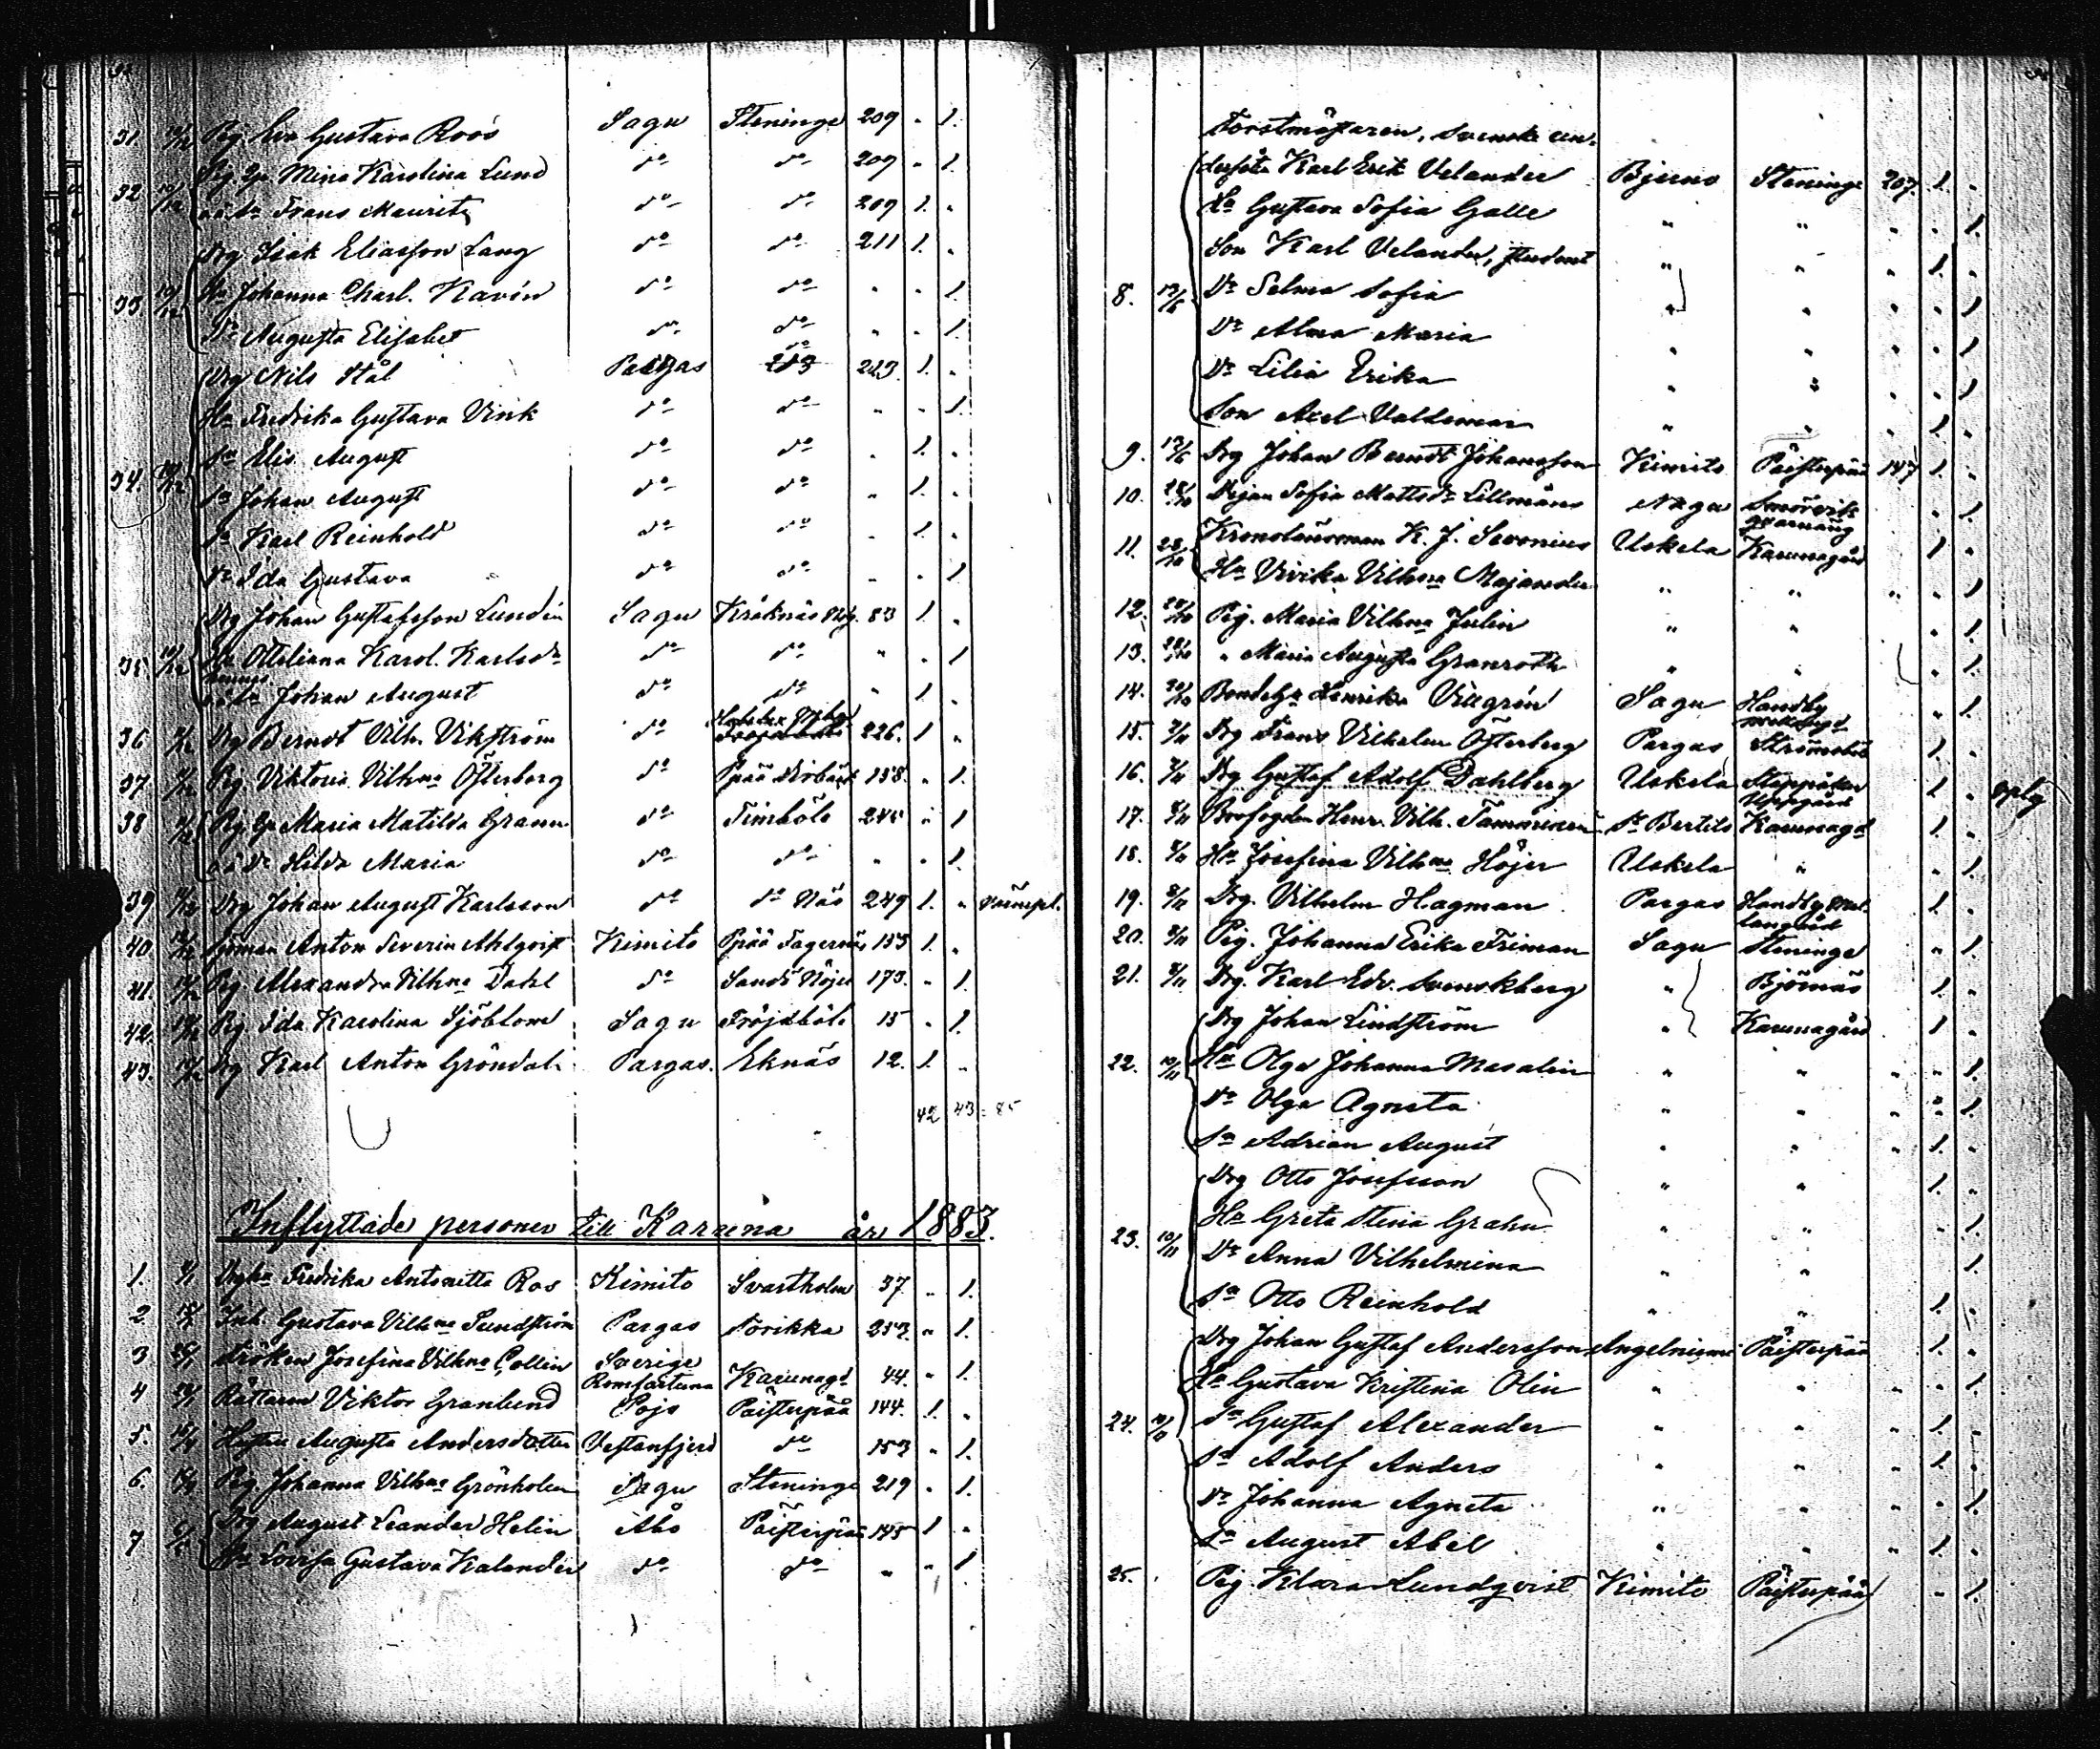 31 Pig. Eva Gustava Roos Sagu Steninge 209 " 1.
32 Pig. Mina Karolina Lund do do 209 " 1.
Frans Mauritz do do 209 1. "
33 Drg Isak Eliasson Lang do do 211 1. "
Hu Johanna Charl. Kavén do do " " 1.
Dr Augusta Elisabet do do " " 1.
34. Drg Nils Stål Pargas 213 1. "
Hu Fredrika Gustava Vink do do " " 1.
Sn Elis August do do " 1. "
Sn Johan August do do " 1. "
Sn Karl Reinhold do do " 1. "
Dr Ida Gustava do do " " 1.
35. Drg Johan Gustafsson Lundén Sagu Kråknäs 83 1. "
Hu Ottiliana Karol. Karlsdr do do " " 1
Johan August do do " 1. "
36 Drg Berndt Vilh. Vikström do 226. 1 "
37 Pig. Viktoria Vilhna Österberg do 158. " 1.
38 Pig. Maria Matilda Grann do Timböle 245 " 1
oä Dr Hilda Maria do do " " 1.
39 Drg Johan August Karlsson do do Näs 249 1. "
40 Anton Severin Ahlqvist Kimito Fagernäs 155 1. "
41 Pig. Alexandra Vilhna Dahl do Sandö Höjer 173. " 1.
42. Pig. Ida Karolina Sjöblom Sagu Fröjdböle 15 " 1.
43. Drg Karl Anton Gröndahl Pargas. Eknäs 12. 1. "
42 43 = 85
Inflyttade personer till Karuna år 1883.
1. Fredrika Antonetta Ros Kimito Svartholm 37 " 1.
2 Inh. Gustava Vilhna Sundström Pargas Torikka 253. " 1.
3 Fröken Josefina Vilhna Collin Sverige Romfartuna Karunagd 44. " 1.
4 Rättaren Viktor Granlund Pojo Päisterpää 144. 1. "
5. Augusta Andersdotter Vestanfjerd do 153 " 1.
6. Pig. Johanna Vilhna Grönholm Sagu Steninge 219 " 1.
7 Drg August Leander Helin Åbo Päisterpää 145 1 "
Hu Lovisa Gustava Kalander do do " " 1
8. 13/6 Forstmästaren, Svenske un-
dersåte Karl Erik Velander Bjerno Steninge 207. 1. "
Hu Gustava Sofia Galle " " " " 1.
Son Karl Velander, student " " " 1. "
Dr Selma Sofia " " " " 1
Dr Alma Maria " " " " 1
Dr Lilia Erika " " " " 1
Son Axel Valdemar " " " 1. "
9. 13/6 Drg Johan Berndt Johansson Kimito Päisterpää 147 1. "
10. 28/10 Pigan Sofia Mattsdr Lillmåns Nagu Smörvik " 1.
11. 28/10 Kronolänsman K. J. Sevonius Uskela Karunagård 1. "
Hu Vivika Vilhna Majander " " " " 1.
12. 28/10 Pig. Maria Vilhna Julin " " " 1.
13. 28/10 " Maria Augusta Granroth " " " 1.
14. Bondehu Henrika Viagrén Sagu Handby " 1.
15. Drg Frans Vilhelm Österberg Pargas 1. "
16. Drg Gustaf Adolf Dahlberg Uskela 1. "
17. Henr. Vilh. Tamminen St Bertils Karunagd 1. "
18. Hu Josefina Vilhna Höjer Uskela " " 1.
19. Drg. Vilhelm Hagman Pargas Handby Mel-
langård 1. "
20. Pig. Johanna Erika Friman Sagu Steninge " 1.
21. Drg. Karl Edv. Svenskberg " Björnäs 1. "
22. 10/11 Drg Johan Lindström " Karunagård 1 "
Hu Olga Johanna Masalin " " " " 1.
Dr Olga Agneta " " " " 1.
Sn Adrian August " " " 1. "
23. 10/11 Drg Otto Josefsson " " " 1. "
Hu Greta Stina Grahn " " " 1.
Dr Anna Vilhelmina " " " 1.
Sn Otto Reinhold " " 1. "
24. 10/11 Drg Johan Gustaf Andersson Angelniemi Päisterpää 1. "
Hu Gustava Kristina Olin " " " " 1.
Sn Gustaf Alexander " " " 1. "
Sn Adolf Anders " " " 1. "
Dr Johanna Agneta " " " " 1.
Sn August Abel " " " 1. "
25. Pig. Klara Lundqvist Kimito Päisterpää " 1.